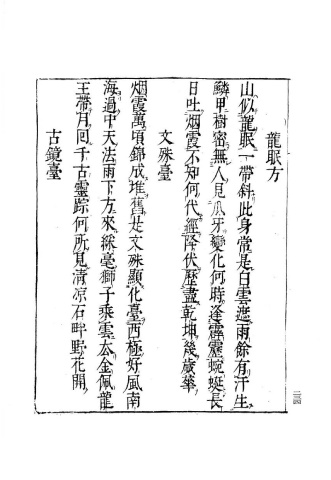 龍眠方
山似龍眠一帶斜此身常是白雲遮雨餘有汗生
鱗甲樹密無人見爪牙變化何時逢霹靂蜿蜒長
日吐烟霞不知何代經降伏歷盡乾坤幾歲華
文殊臺
烟霞萬頃錦成堆舊是文殊顯化臺西極好風南
海過中天法雨下方來綵毫獅子乘雲去金佩龍
王帶月回千古靈踪何所見清凉石畔野花開
古鏡臺
二三四